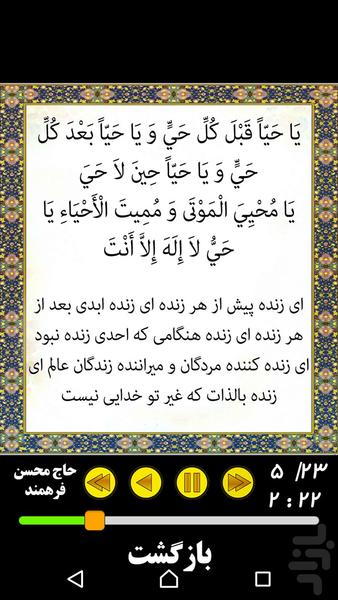 يَا حَيّاً قَبْلَ كُلِّ حَيٍّ وَ يَا حَيّاً بَعْدَ كُلِّ
حَيٍّ وَ يَا حَيّاً حِينَ لاَ حَيَ
يَا مُحْيِيَ الْمَوْتَى وَ مُمِيتَ الْأَحْيَاءِ يَا
حَيُّ لاَ إِلَهَ إِلاَّ أَنْتَ
ای زنده پیش از هر زنده ای زنده ابدی بعد از
هر زنده ای زنده هنگامی که احدی زنده نبود
ای زنده کننده مردگان و میراننده زندگان عالم ای
زنده بالذات که غیر تو خدایی نیست
حاج محسن
فرهمند
۵ /۲۳
۲ : ۲۲
بازگشت
بازار